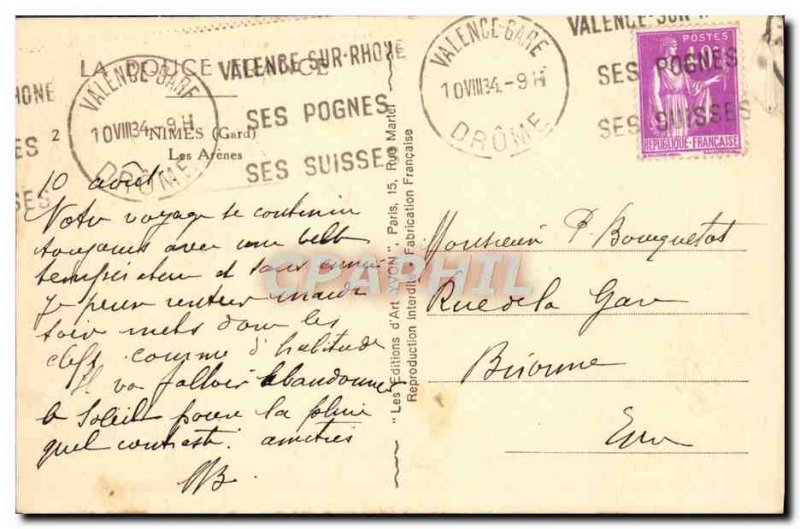 LA DOUCE FRANCE
VALENCE-SUR-RHONE
SES POGNES
SES SUISSES
VALENCE-GARE
10 VIII 34 - 9 H
DRÔME
RHONE
ES
SES
2
NIMES (Gard)
Les Arènes
VALENCE-GARE
10 VIII 34 - 9 H
DRÔME
VALENCE-SUR-R
SES POGNES
SES SUISSES
POSTES
40c
REPUBLIQUE-FRANÇAISE
10 août
Notre voyage se continue
toujours avec une belle
température et sans ennui
Je pense rentrer mardi
soir mets donc les
clefs comme d'habitude
Il va falloir abandonner
le Soleil pour la pluie
quel contraste. amitiés
"Les Editions d'Art YVON", Paris, 15, Rue Martel
Reproduction interdite - Fabrication Française
Monsieur P. Bouquetot
Rue de la Gare
Brionne
Eure
CPARHIL